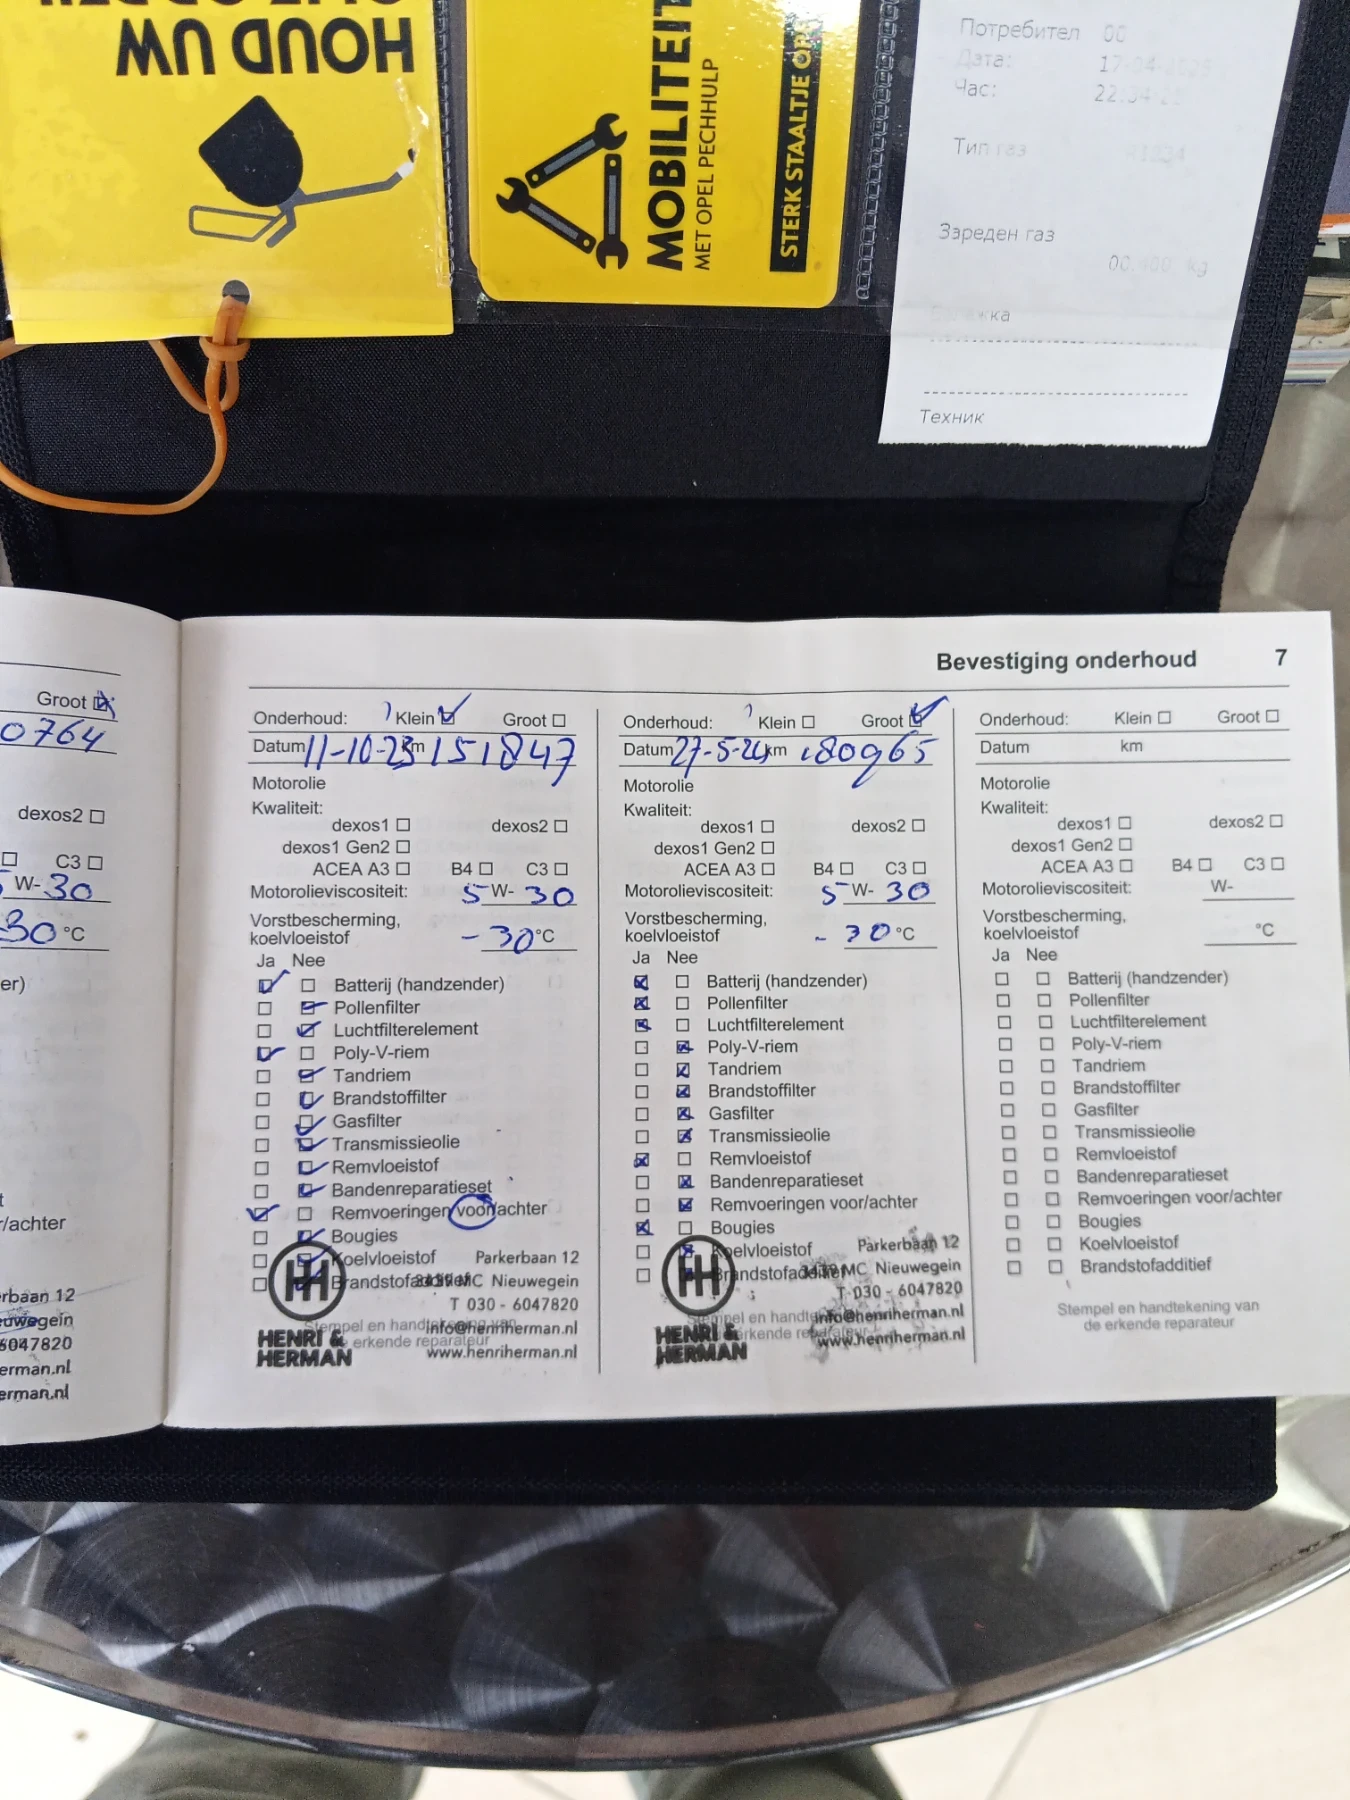 HOUD UW
MOBILITEIT
MET OPEL PECHHULP
STERK STAALTJE OP
Потребител 00
Дата: 17-04-2025
Час: 22:34
Тип газ R1234
Зареден газ
kg
Техник
Groot
0764
dexos2
C3
W- 30
30 °C
er)
t
r/achter
rbaan 12
euwegein
6047820
erman.nl
erman.nl
Bevestiging onderhoud 7
Onderhoud: Klein Groot
Datum 11-10-23 km 151847
Motorolie
Kwaliteit:
dexos1 dexos2
dexos1 Gen2
ACEA A3 B4 C3
Motorolieviscositeit: 5 W- 30
Vorstbescherming,
koelvloeistof - 30 °C
Ja Nee
Batterij (handzender)
Pollenfilter
Luchtfilterelement
Poly-V-riem
Tandriem
Brandstoffilter
Gasfilter
Transmissieolie
Remvloeistof
Bandenreparatieset
Remvoeringen voor/achter
Bougies
Koelvloeistof
Brandstofadditief
Stempel en handtekening van
de erkende reparateur
HENRI &
HERMAN
Parkerbaan 12
3439 MC Nieuwegein
T 030 - 6047820
info@henriherman.nl
www.henriherman.nl
Onderhoud: Klein Groot
Datum 27-5-24 km 180965
Motorolie
Kwaliteit:
dexos1 dexos2
dexos1 Gen2
ACEA A3 B4 C3
Motorolieviscositeit: 5 W- 30
Vorstbescherming,
koelvloeistof - 30 °C
Ja Nee
Batterij (handzender)
Pollenfilter
Luchtfilterelement
Poly-V-riem
Tandriem
Brandstoffilter
Gasfilter
Transmissieolie
Remvloeistof
Bandenreparatieset
Remvoeringen voor/achter
Bougies
Koelvloeistof
Brandstofadditief
Stempel en handtekening van
de erkende reparateur
HENRI &
HERMAN
Parkerbaan 12
3439 MC Nieuwegein
T 030 - 6047820
info@henriherman.nl
www.henriherman.nl
Onderhoud: Klein Groot
Datum km
Motorolie
Kwaliteit:
dexos1 dexos2
dexos1 Gen2
ACEA A3 B4 C3
Motorolieviscositeit: W-
Vorstbescherming,
koelvloeistof °C
Ja Nee
Batterij (handzender)
Pollenfilter
Luchtfilterelement
Poly-V-riem
Tandriem
Brandstoffilter
Gasfilter
Transmissieolie
Remvloeistof
Bandenreparatieset
Remvoeringen voor/achter
Bougies
Koelvloeistof
Brandstofadditief
Stempel en handtekening van
de erkende reparateur